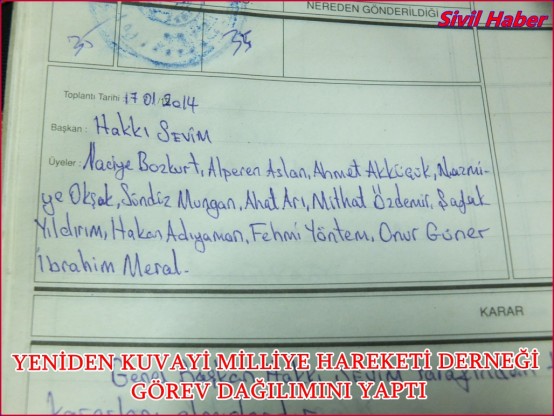 NEREDEN GÖNDERİLDİĞİ
Sivil Haber
35
35
Toplantı Tarihi 17 01/2014
Başkan: Hakkı SEVİM
Üyeler: Naciye Bozkurt, Alperen Aslan, Ahmet Akküçük, Nazmi-
ye Okşak, Söndüz Mungan, Ahat Arı, Mithat Özdemir, Şafak
Yıldırım, Hakan Adıyaman, Fehmi Yöntem, Onur Güner
İbrahim Meral.
KARAR
Genel Başkan Hakkı SEVİM tarafından
YENİDEN KUVAYİ MİLLİYE HAREKETİ DERNEĞİ
GÖREV DAĞILIMINI YAPTI